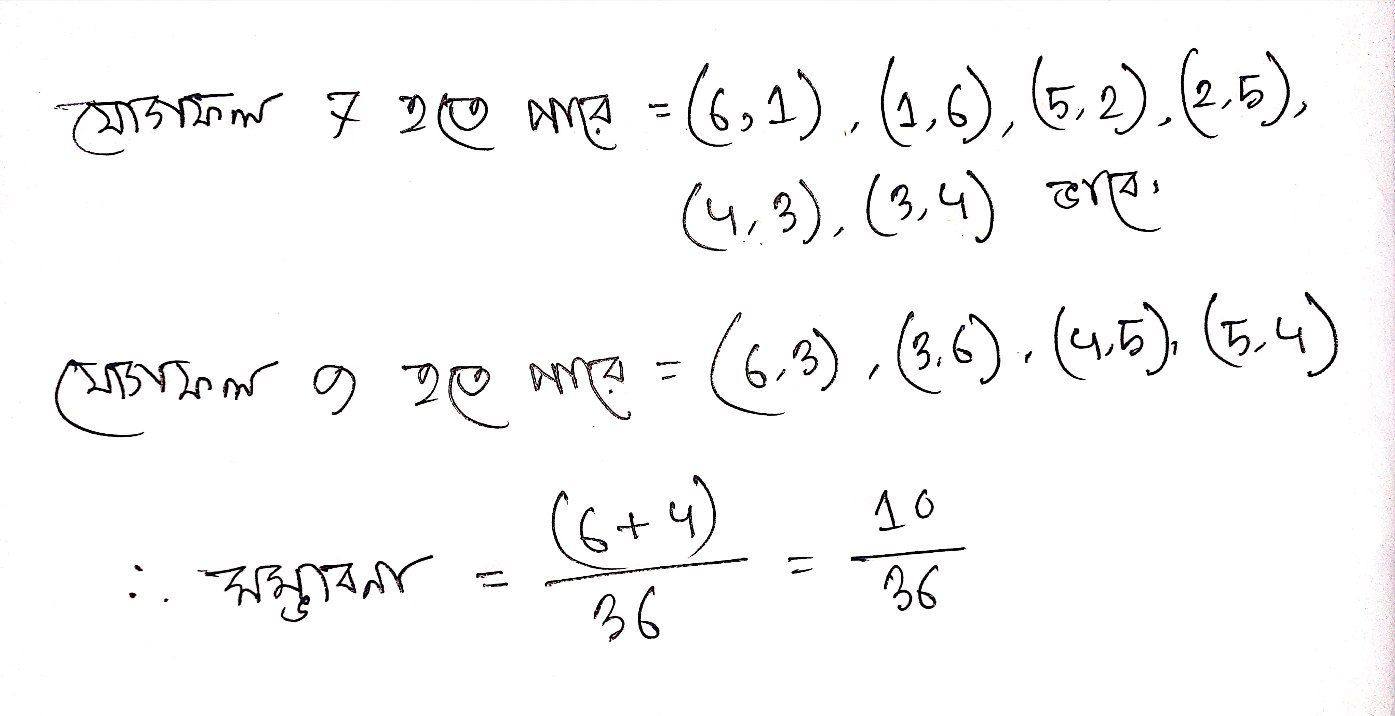 যোগফল 7 হতে পারে = (6,1), (1,6), (5,2), (2,5),
(4,3), (3,4) ভাবে।
যোগফল 9 হতে পারে = (6,3), (3,6), (4,5), (5,4)
∴ সম্ভাবনা = (6+4)/36 = 10/36